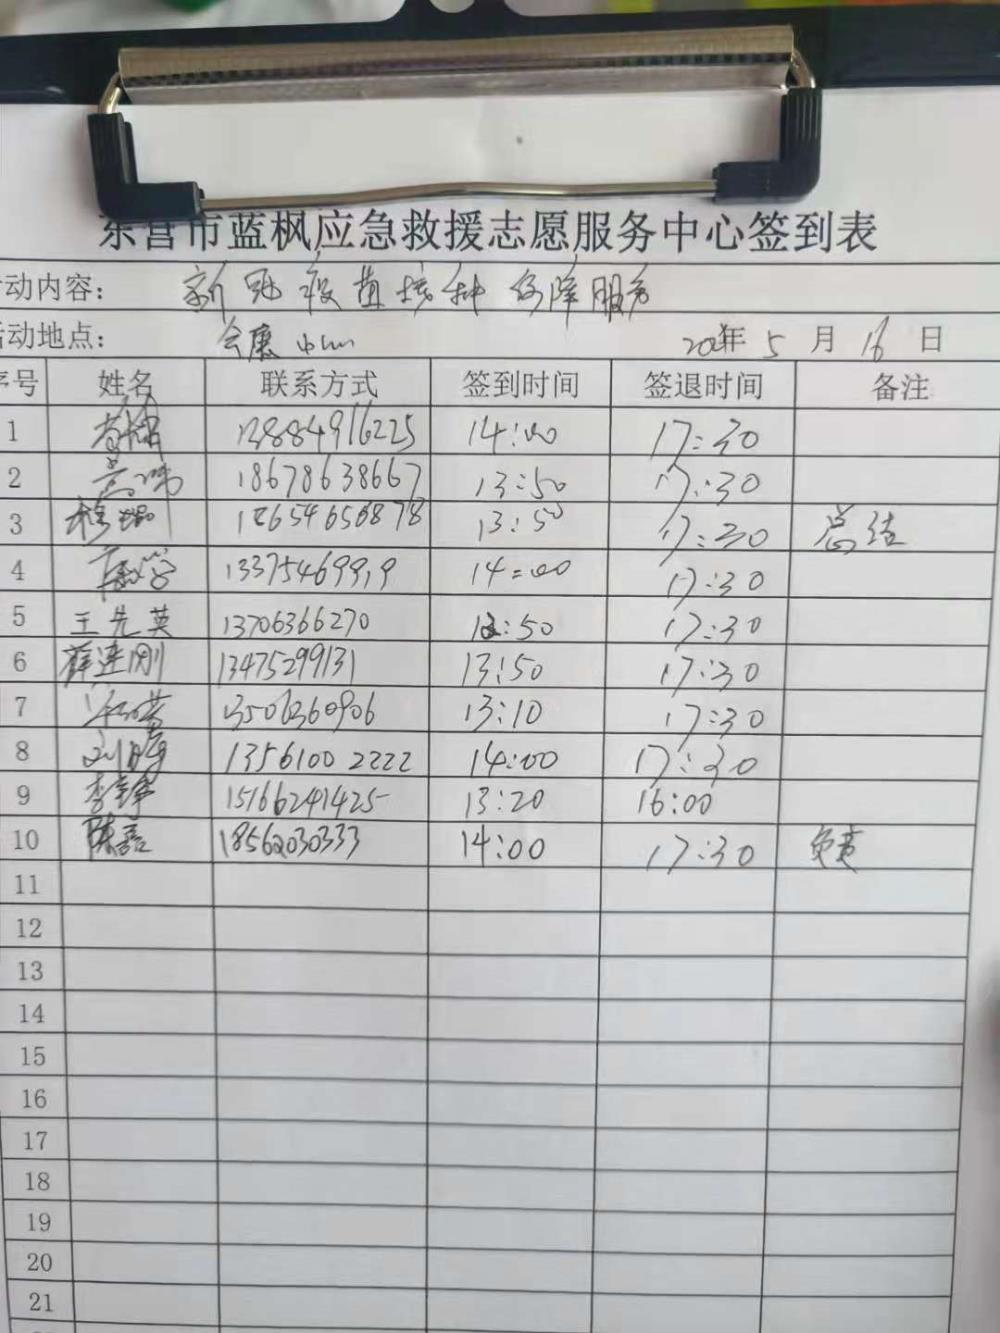 东营市蓝枫应急救援志愿服务中心签到表
活动内容： 新冠疫苗接种保障服务
活动地点： 会展中心 2021年 5 月 16 日
序号 姓名 联系方式 签到时间 签退时间 备注
1 14:00 17:30
2 18678638667 13:50 17:30
3 13:50 17:30 总结
4 14:00 17:30
5 王先英 13706366270 17:30
6 薛连刚 13475299131 13:50 17:30
7 13506360906 13:10 17:30
8 13561002222 14:00 17:30
9 15166241425 13:20 16:00
10 18562030333 14:00 17:30 负责
11
12
13
14
15
16
17
18
19
20
21